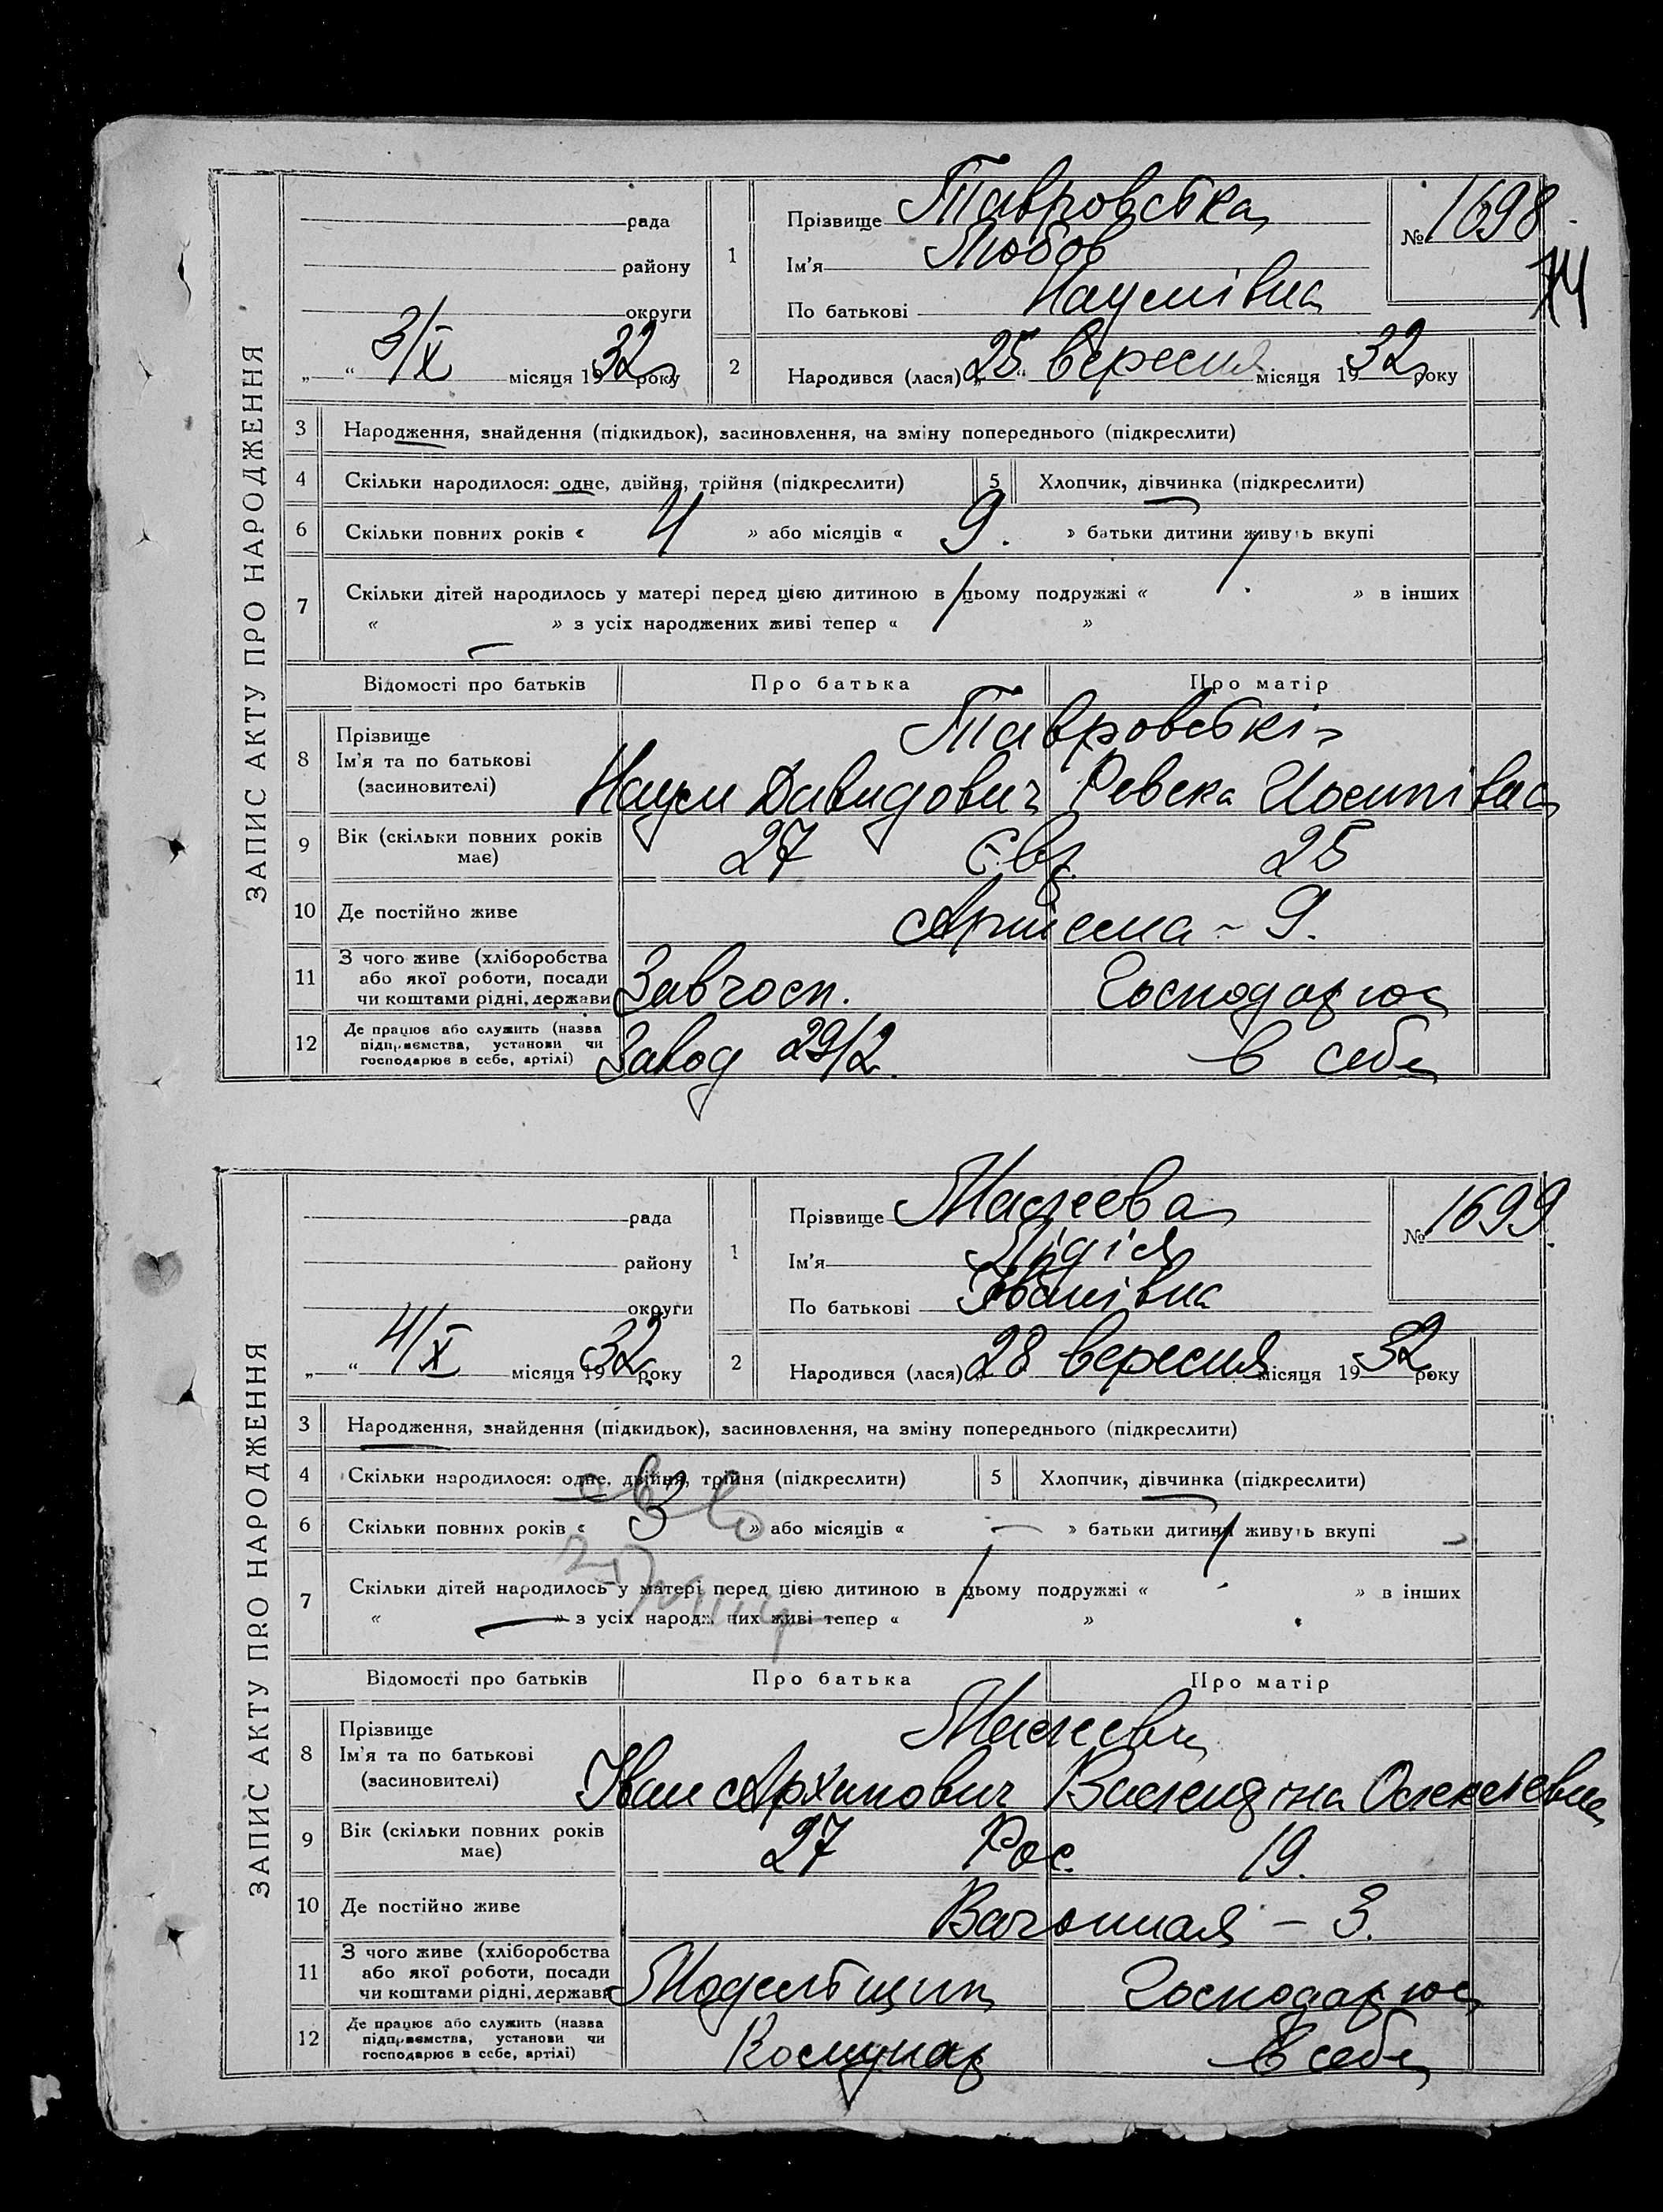 ЗАПИС АКТУ ПРО НАРОДЖЕННЯ
рада
району
округи
„ “ 3/X місяця 1932 року
1 Прізвище Тавровська
Ім'я Любов
По батькові Наумівна
№ 1698
74
2 Народився (лася) „25“ вересня місяця 1932 року
3 Народження, знайдення (підкидьок), засиновлення, на зміну попереднього (підкреслити)
4 Скільки народилося: одне, двійня, трійня (підкреслити) 5 Хлопчик, дівчинка (підкреслити)
6 Скільки повних років « 4 » або місяців « 9. » батьки дитини живуть вкупі
7 Скільки дітей народилось у матері перед цією дитиною в цьому подружжі « » в інших
« — » з усіх народжених живі тепер « »
Відомості про батьків Про батька Про матір
8 Прізвище Тавровські
Ім'я та по батькові Наум Давидович Ревека Йосипівна
(засиновителі)
9 Вік (скільки повних років має) 27 Євр. 25
10 Де постійно живе Артема - 9.
11 З чого живе (хліборобства або якої роботи, посади чи коштами рідні, держави Завгосп. Господарює
12 Де працює або служить (назва підприємства, установи чи господарює в себе, артілі) Завод 29/2. в себе
ЗАПИС АКТУ ПРО НАРОДЖЕННЯ
рада
району
округи
„ “ 4/X місяця 1932 року
1 Прізвище Малеева
Ім'я Лідія
По батькові Іванівна
№ 1699.
2 Народився (лася) „28 вересня місяця 1932 року
3 Народження, знайдення (підкидьок), засиновлення, на зміну попереднього (підкреслити)
4 Скільки народилося: одне, двійня, трійня (підкреслити) 5 Хлопчик, дівчинка (підкреслити)
6 Скільки повних років « 3 » або місяців « — » батьки дитини живуть вкупі
7 Скільки дітей народилось у матері перед цією дитиною в цьому подружжі « » в інших
« — » з усіх народжених живі тепер « »
Відомості про батьків Про батька Про матір
8 Прізвище Малееви
Ім'я та по батькові Іван Архипович Валендіна Олексіевна
(засиновителі)
9 Вік (скільки повних років має) 27 Рос. 19.
10 Де постійно живе Вагонная - 3.
11 З чого живе (хліборобства або якої роботи, посади чи коштами рідні, держави Модельщик Господарює
12 Де працює або служить (назва підприємства, установи чи господарює в себе, артілі) Комунар в себе